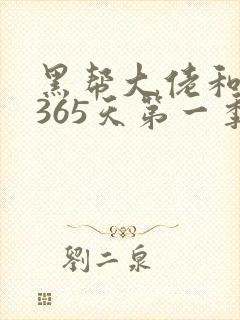 黑帮大佬和
365天第一季
劉二泉